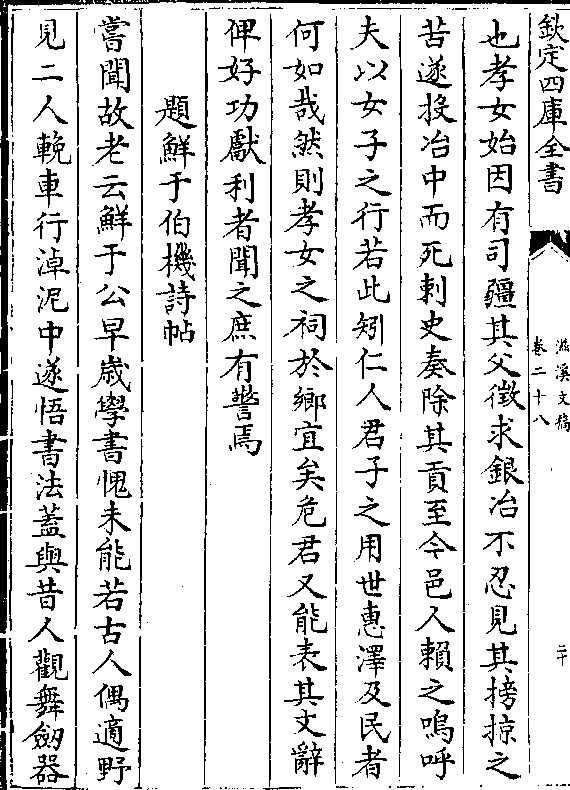 欽定四庫全書
滋溪文稿
卷二十八
二十
也孝女始因有司疆其父徵求銀冶不忍見其搒掠之
苦遂投冶中而死刺史奏除其貢至今邑人賴之嗚呼
夫以女子之行若此矧仁人君子之用世惠澤及民者
何如哉然則孝女之祠於鄉宜矣危君又能表其文辭
俾好功獻利者聞之庶有警焉
題鮮于伯機詩帖
嘗聞故老云鮮于公早歲學書愧未能若古人偶適野
見二人輓車行淖泥中遂悟書法蓋與昔人觀舞劒器